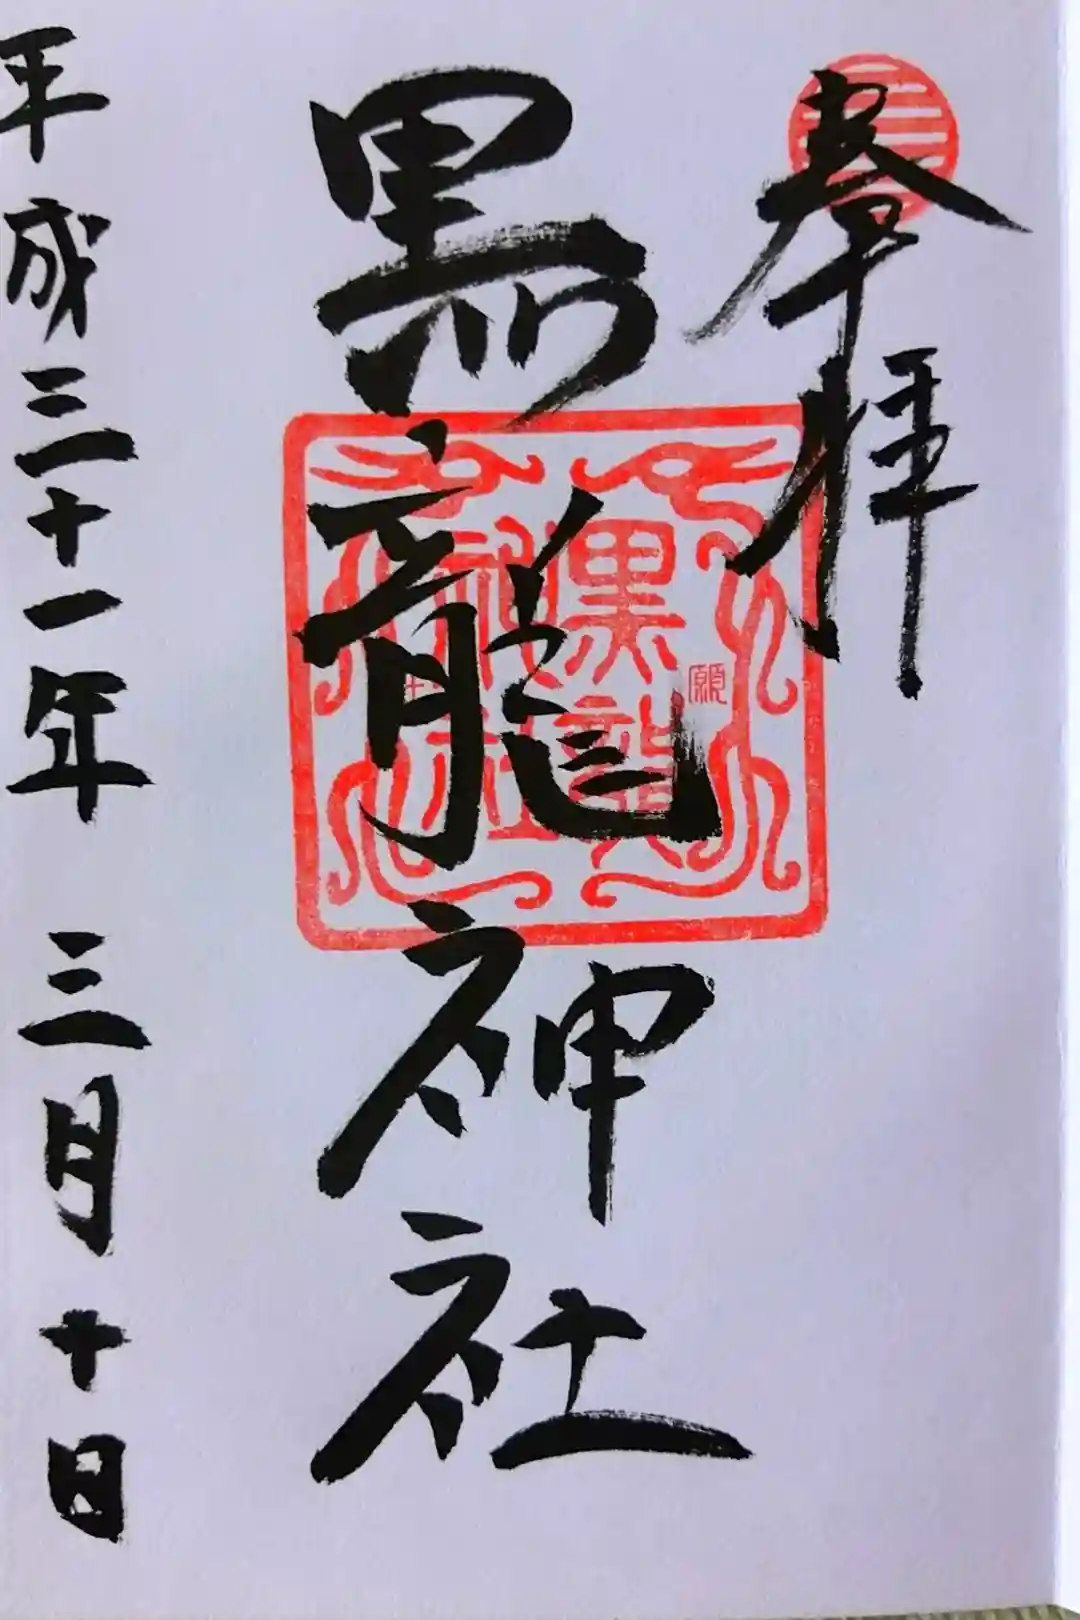 奉拝
黒龍神社
平成三十一年 三月十日
黒龍
神社
願